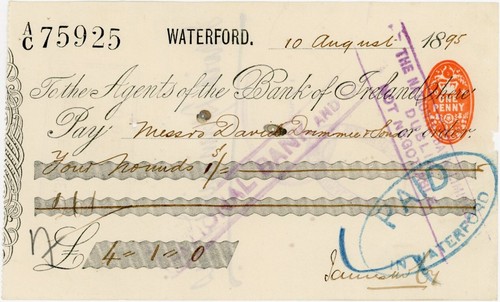 A/C 75925 WATERFORD. 10 August 1895
To the Agents of the Bank of Ireland
Pay Messrs David Drummond & Sons or order
Four Pounds 1s/=
£ 4=1=0
ONE PENNY
THE NATIONAL BANK
NOT NEGOTIABLE
NATIONAL BANK AND
PAID
IN WATERFORD